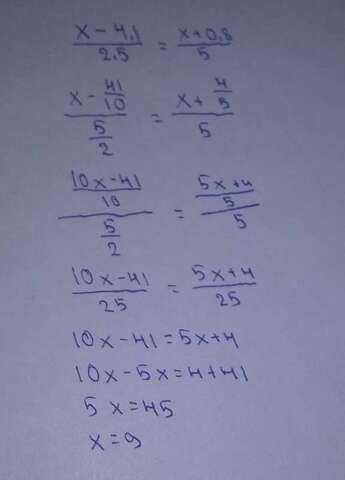 x - 4,1 / 2.5 = x + 0,8 / 5
x - 41/10 / 5/2 = x + 4/5 / 5
10x - 41 / 10 / 5/2 = 5x + 4 / 5 / 5
10x - 41 / 25 = 5x + 4 / 25
10x - 41 = 5x + 4
10x - 5x = 4 + 41
5x = 45
x = 9